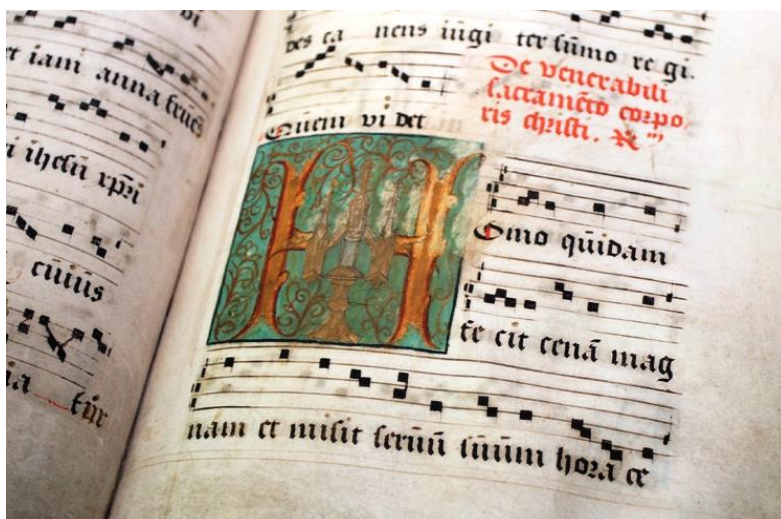 vi
et iam anna frues
i ihesu xp̄ri
cuius
ia tur
bes ca nens iūgi ter sūmo re gi.
De venerabili
sacramēto corpo
ris christi. R
Quem vi det
HOmo quidam
fe cit cenā mag
nam et misit seruū suum hora ce